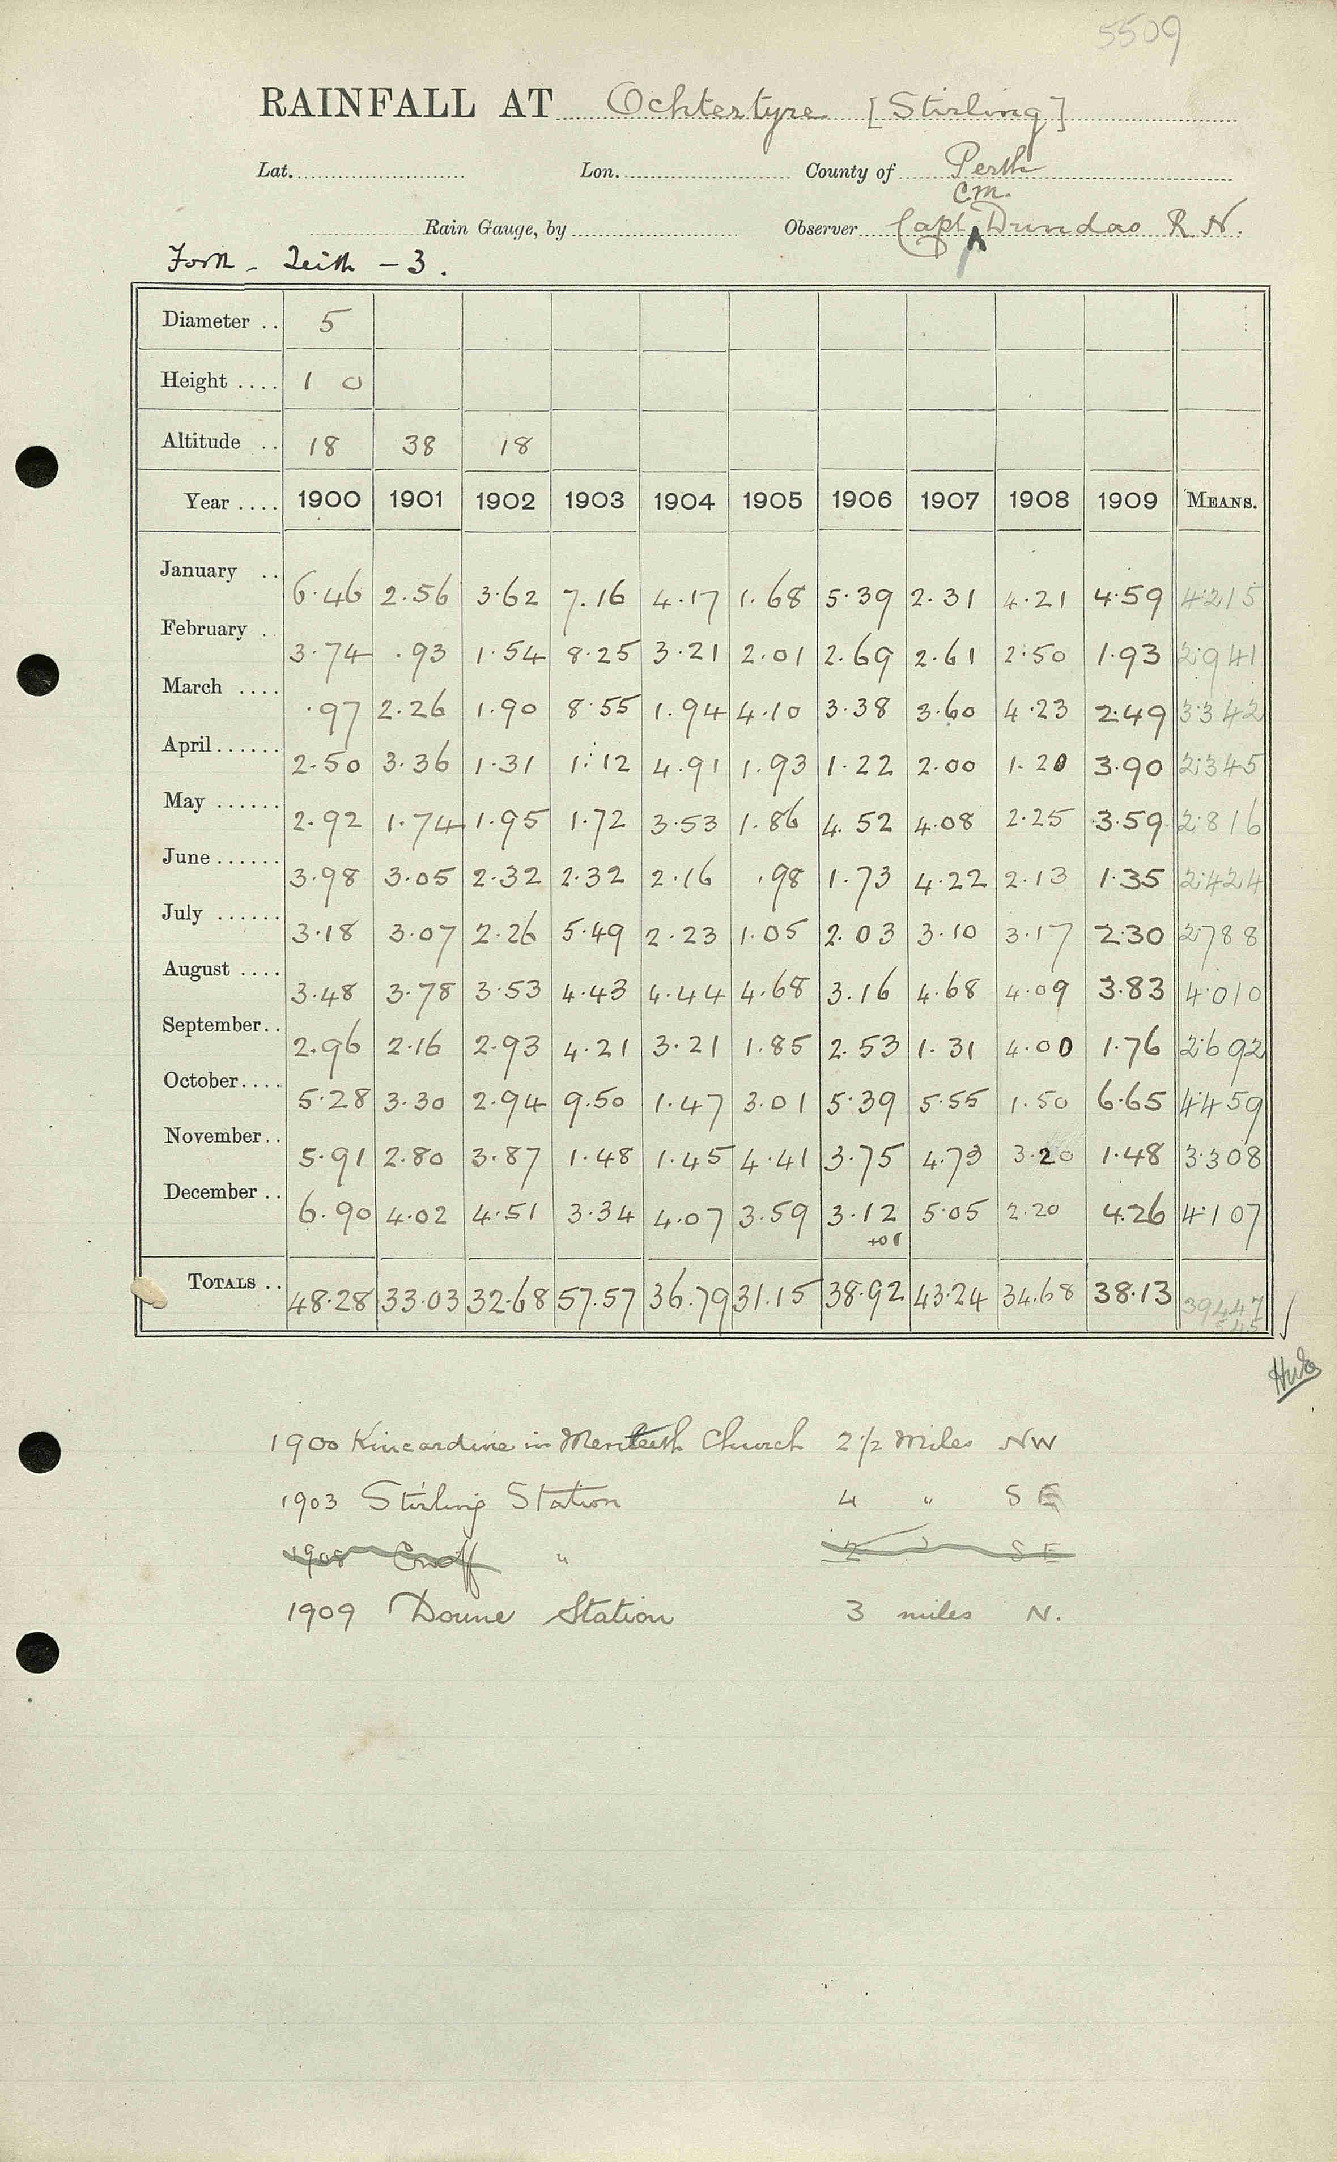 5509
RAINFALL AT Ochtertyre [Stirling]
Lat. Lon. County of Perth
C.M.
Rain Gauge, by Observer Capt Dundas R.N.
Forth - Teith - 3.
Diameter .. 5
Height .... 1 0
Altitude .. 18 38 18
Year .... 1900 1901 1902 1903 1904 1905 1906 1907 1908 1909 MEANS.
January .. 6.46 2.56 3.62 7.16 4.17 1.68 5.39 2.31 4.21 4.59 4.215
February .. 3.74 .93 1.54 8.25 3.21 2.01 2.69 2.61 2.50 1.93 2.941
March .... .97 2.26 1.90 8.55 1.94 4.10 3.38 3.60 4.23 2.49 3.342
April...... 2.50 3.36 1.31 1.12 4.91 1.93 1.22 2.00 1.20 3.90 2.345
May ...... 2.92 1.74 1.95 1.72 3.53 1.86 4.52 4.08 2.25 3.59 2.816
June...... 3.98 3.05 2.32 2.32 2.16 .98 1.73 4.22 2.13 1.35 2.424
July ...... 3.18 3.07 2.26 5.49 2.23 1.05 2.03 3.10 3.17 2.30 2.788
August .... 3.48 3.78 3.53 4.43 4.44 4.68 3.16 4.68 4.09 3.83 4.010
September.. 2.96 2.16 2.93 4.21 3.21 1.85 2.53 1.31 4.00 1.76 2.692
October.... 5.28 3.30 2.94 9.50 1.47 3.01 5.39 5.55 1.50 6.65 4.459
November.. 5.91 2.80 3.87 1.48 1.45 4.41 3.75 4.73 3.20 1.48 3.308
December .. 6.90 4.02 4.51 3.34 4.07 3.59 3.12 5.05 2.20 4.26 4.107
+01
TOTALS .. 48.28 33.03 32.68 57.57 36.79 31.15 38.92 43.24 34.68 38.13 39447
545
1900 Kincardine in Menteith Church 2½ Miles NW
1903 Stirling Station 4 " SE
1908 Crieff " 2 " SE
1909 Doune Station 3 miles N.